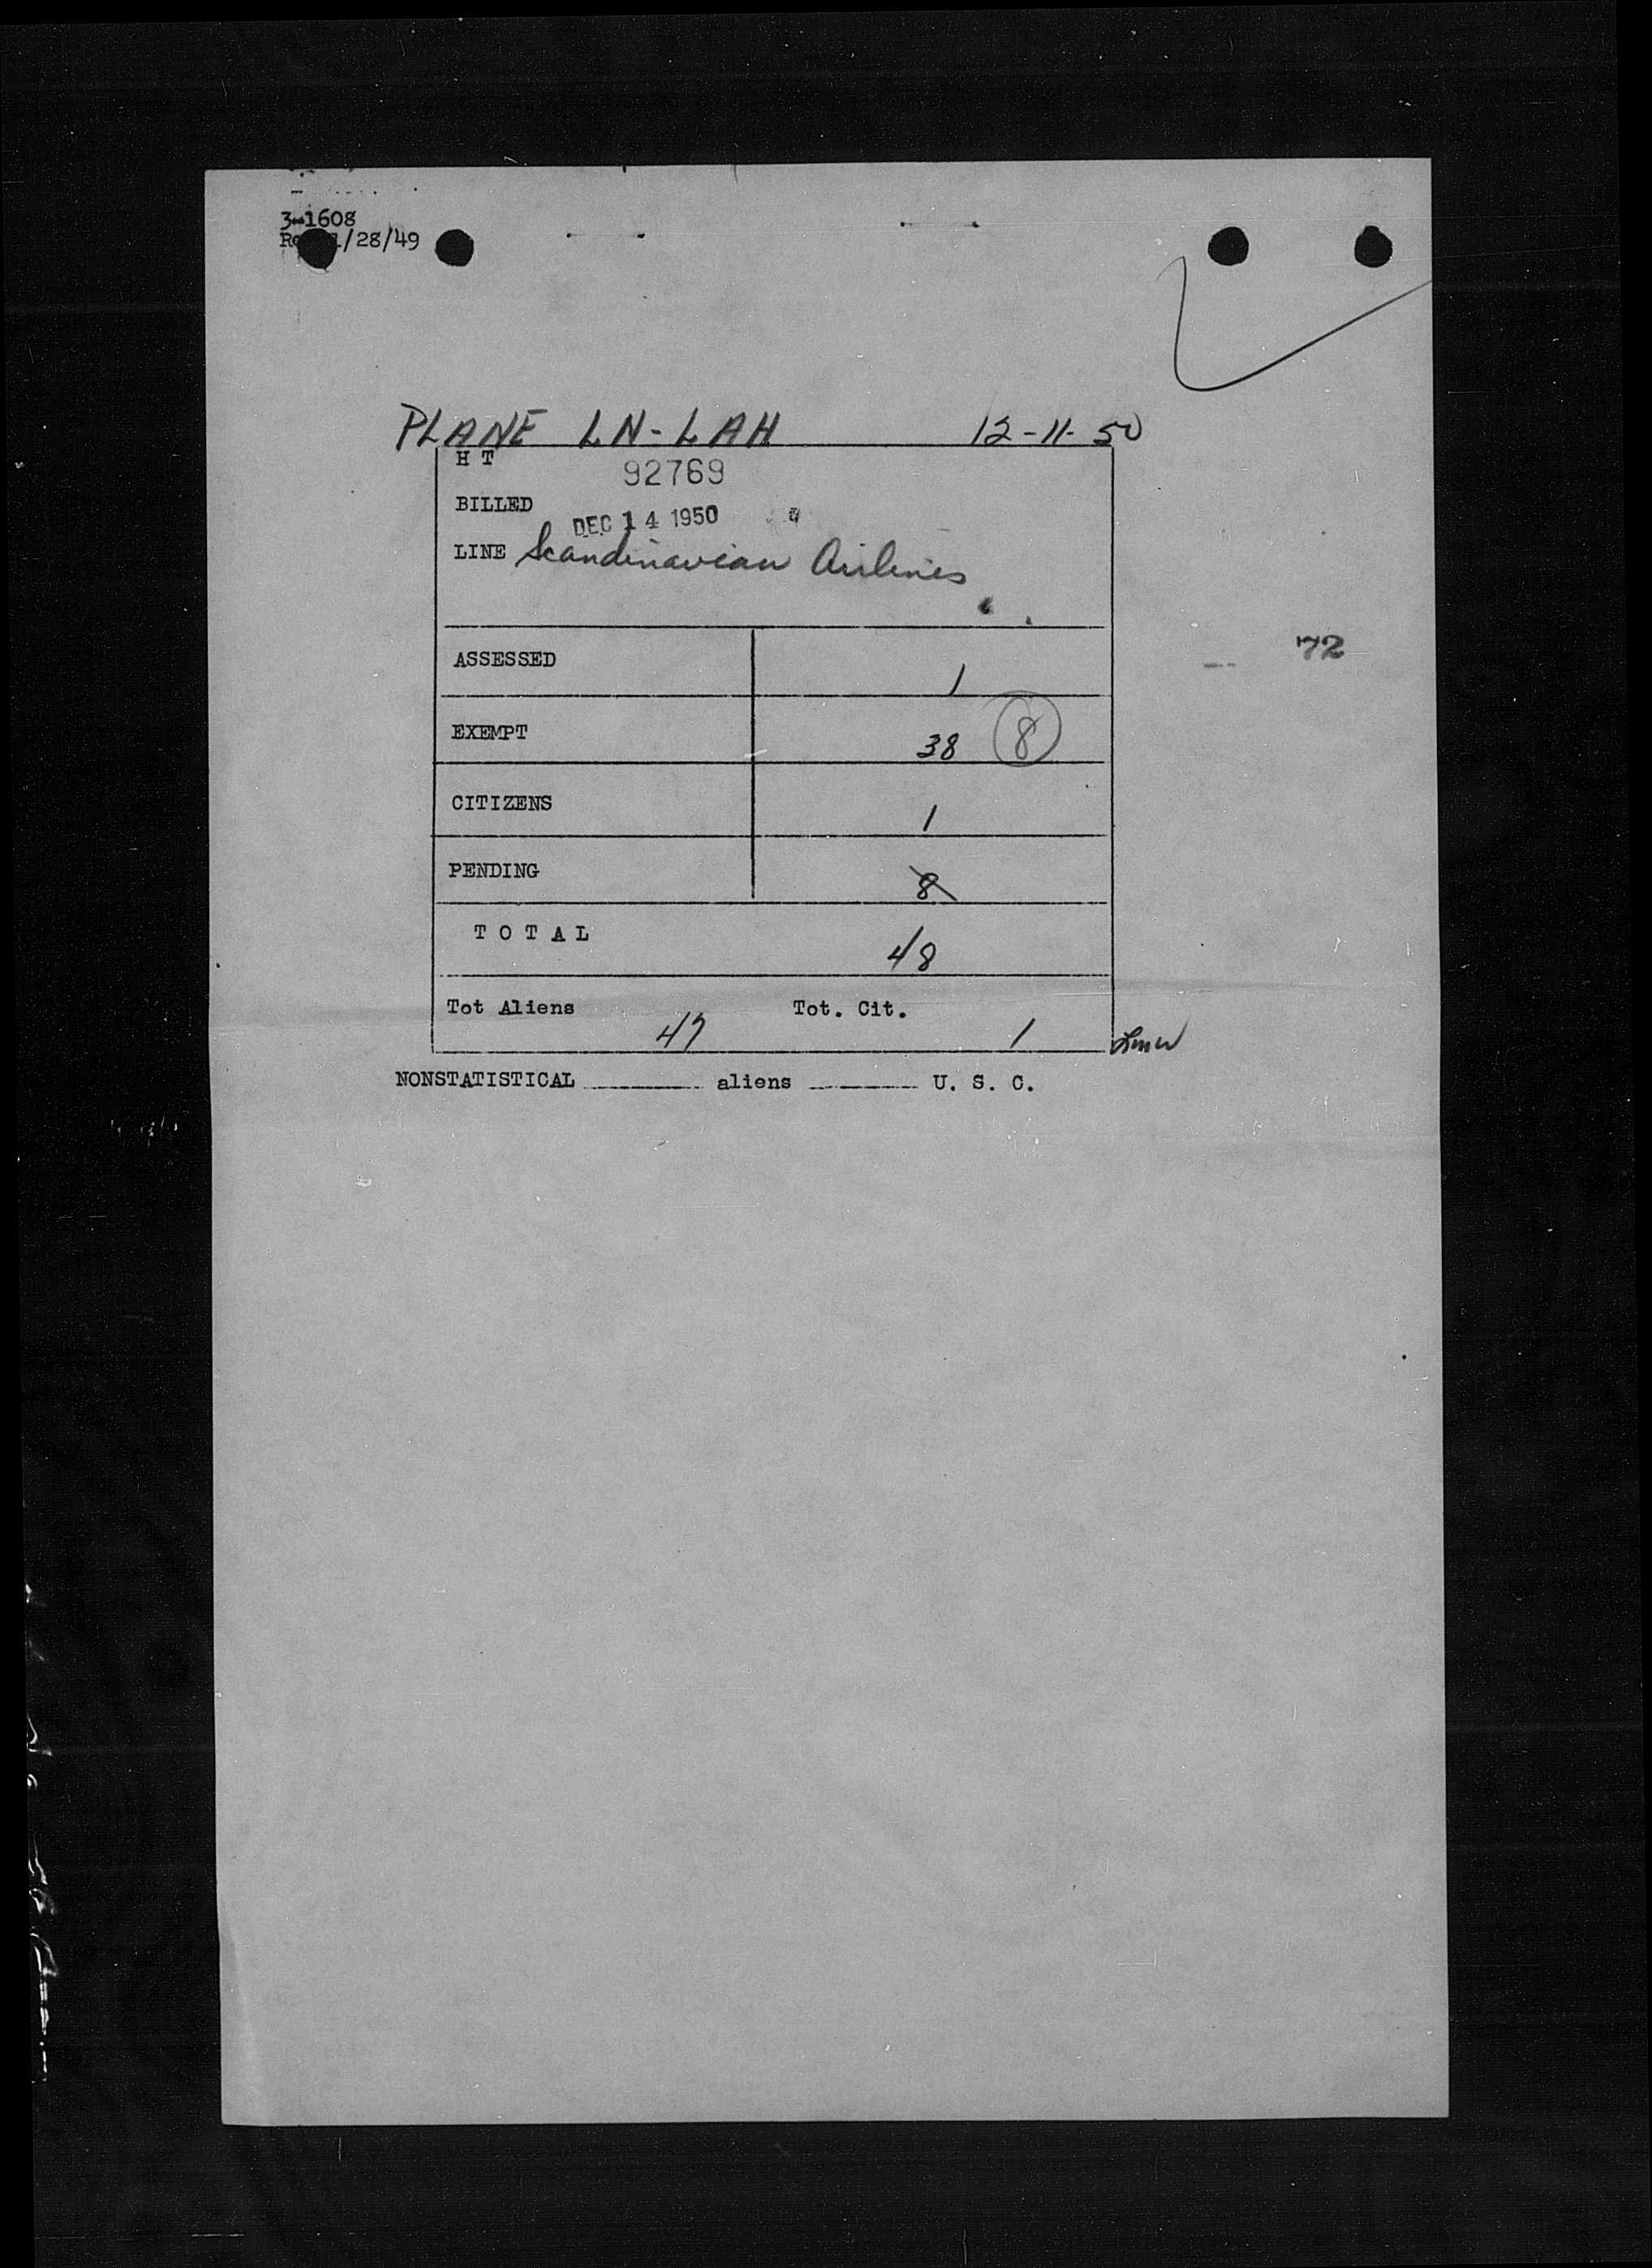 3-1608
1/28/49
PLANE LN-LAH 12-11-50
H T 92769
BILLED DEC 14 1950
LINE Scandinavian Airlines
72
ASSESSED 1
EXEMPT 38 8
CITIZENS 1
PENDING 8
TOTAL 48
Tot Aliens 47 Tot. Cit. 1
NONSTATISTICAL aliens U. S. C.